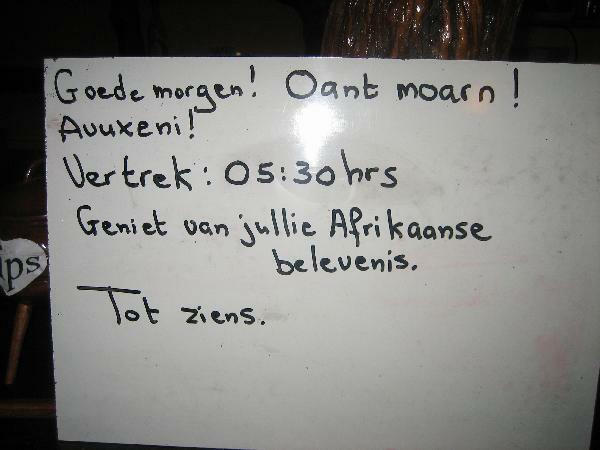 Goede morgen! Oant moarn!
Avuxeni!
Vertrek: 05:30 hrs
Geniet van jullie Afrikaanse
belevenis.
Tot ziens.
ps